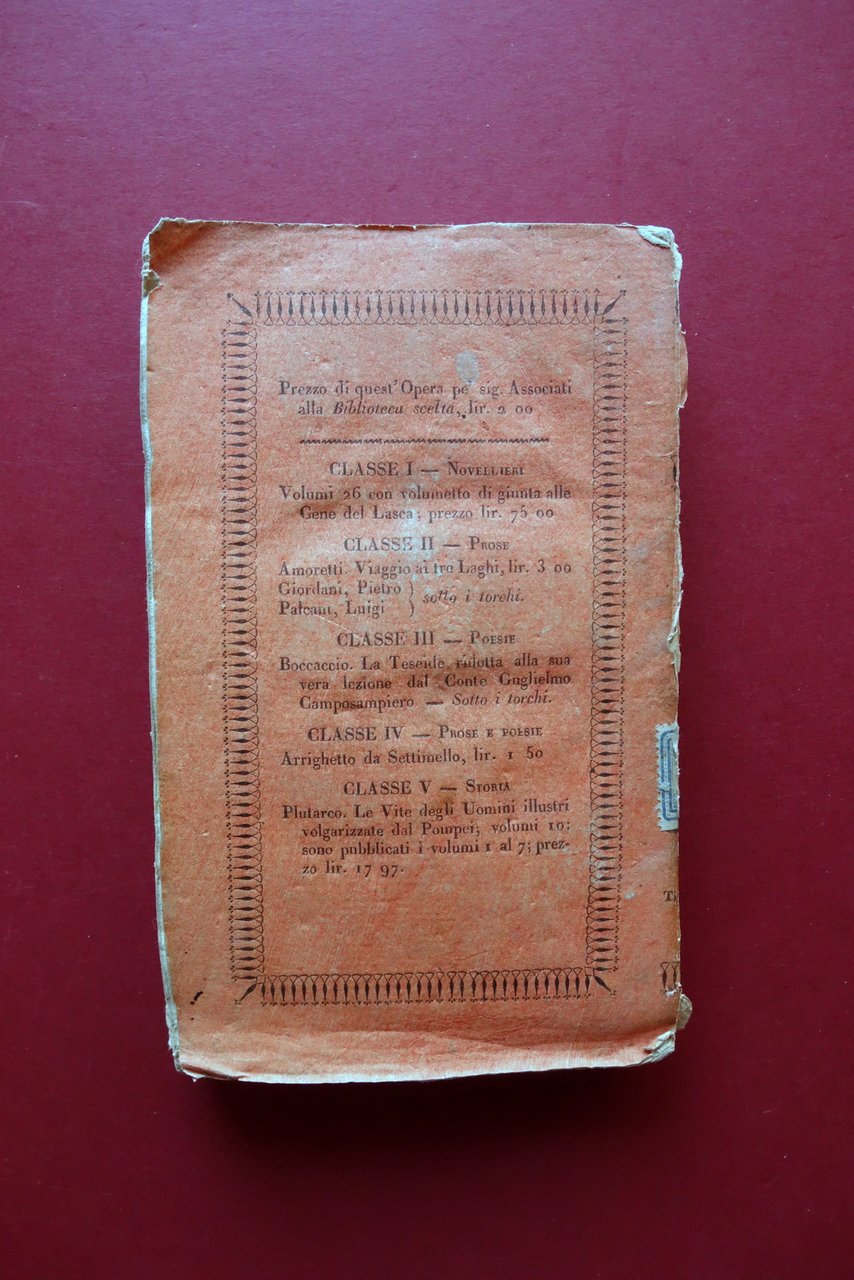 Prezzo di quest'Opera pe' sig. Associati
alla Biblioteca scelta, lir. 2 00
CLASSE I — NOVELLIERI
Volumi 26 con volumetto di giunta alle
Cene del Lasca; prezzo lir. 75 00
CLASSE II — PROSE
Amoretti. Viaggio ai tre Laghi, lir. 3 00
Giordani, Pietro )
Palcani, Luigi ) sotto i torchi.
CLASSE III — POESIE
Boccaccio. La Teseide ridotta alla sua
vera lezione dal Conte Guglielmo
Camposampiero — Sotto i torchi.
CLASSE IV — PROSE E POESIE
Arrighetto da Settimello, lir. 1 50
CLASSE V — STORIA
Plutarco. Le Vite degli Uomini illustri
volgarizzate dal Pompei; volumi 10:
sono pubblicati i volumi 1 al 7; prez-
zo lir. 17 97.